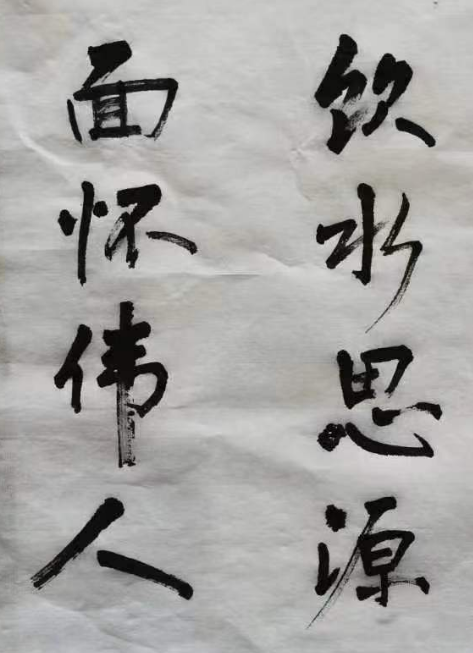 饮水思源
面怀伟人